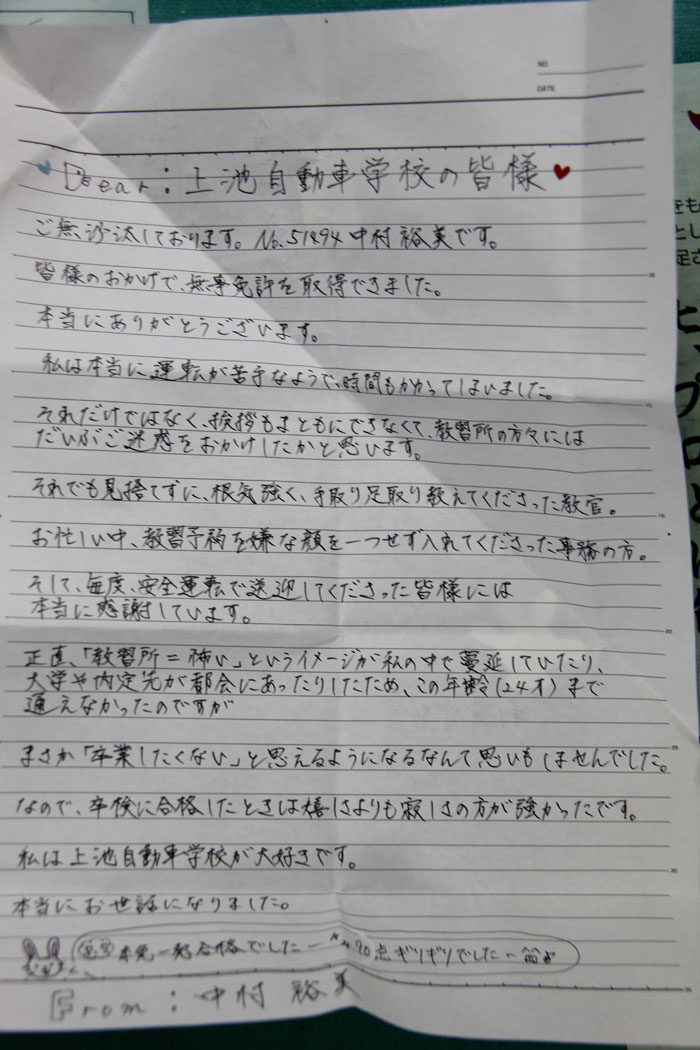 NO.
DATE
Dear：上池自動車学校の皆様
ご無沙汰しております。No.51494 中村裕美です。
皆様のおかげで、無事免許を取得できました。
本当にありがとうございます。
私は本当に運転が苦手なようで、時間もかかってしまいました。
それだけではなく、挨拶もまともにできなくて、教習所の方々には
だいぶご迷惑をおかけしたかと思います。
それでも見捨てずに、根気強く、手取り足取り教えてくださった教官。
お忙しい中、教習予約を嫌な顔を一つせず入れてくださった事務の方。
そして、毎度、安全運転で送迎してくださった皆様には
本当に感謝しています。
正直、「教習所＝怖い」というイメージが私の中で蔓延していたり、
大学や内定先が都会にあったりしたため、この年齢(24才)まで
通えなかったのですが
まさか「卒業したくない」と思えるようになるなんて思いもしませんでした。
なので、卒検に合格したときは嬉しさよりも寂しさの方が強かったです。
私は上池自動車学校が大好きです。
本当にお世話になりました。
本免一発合格でしたー 90点ギリギリでしたー
From：中村 裕美
をも
とし
足さ